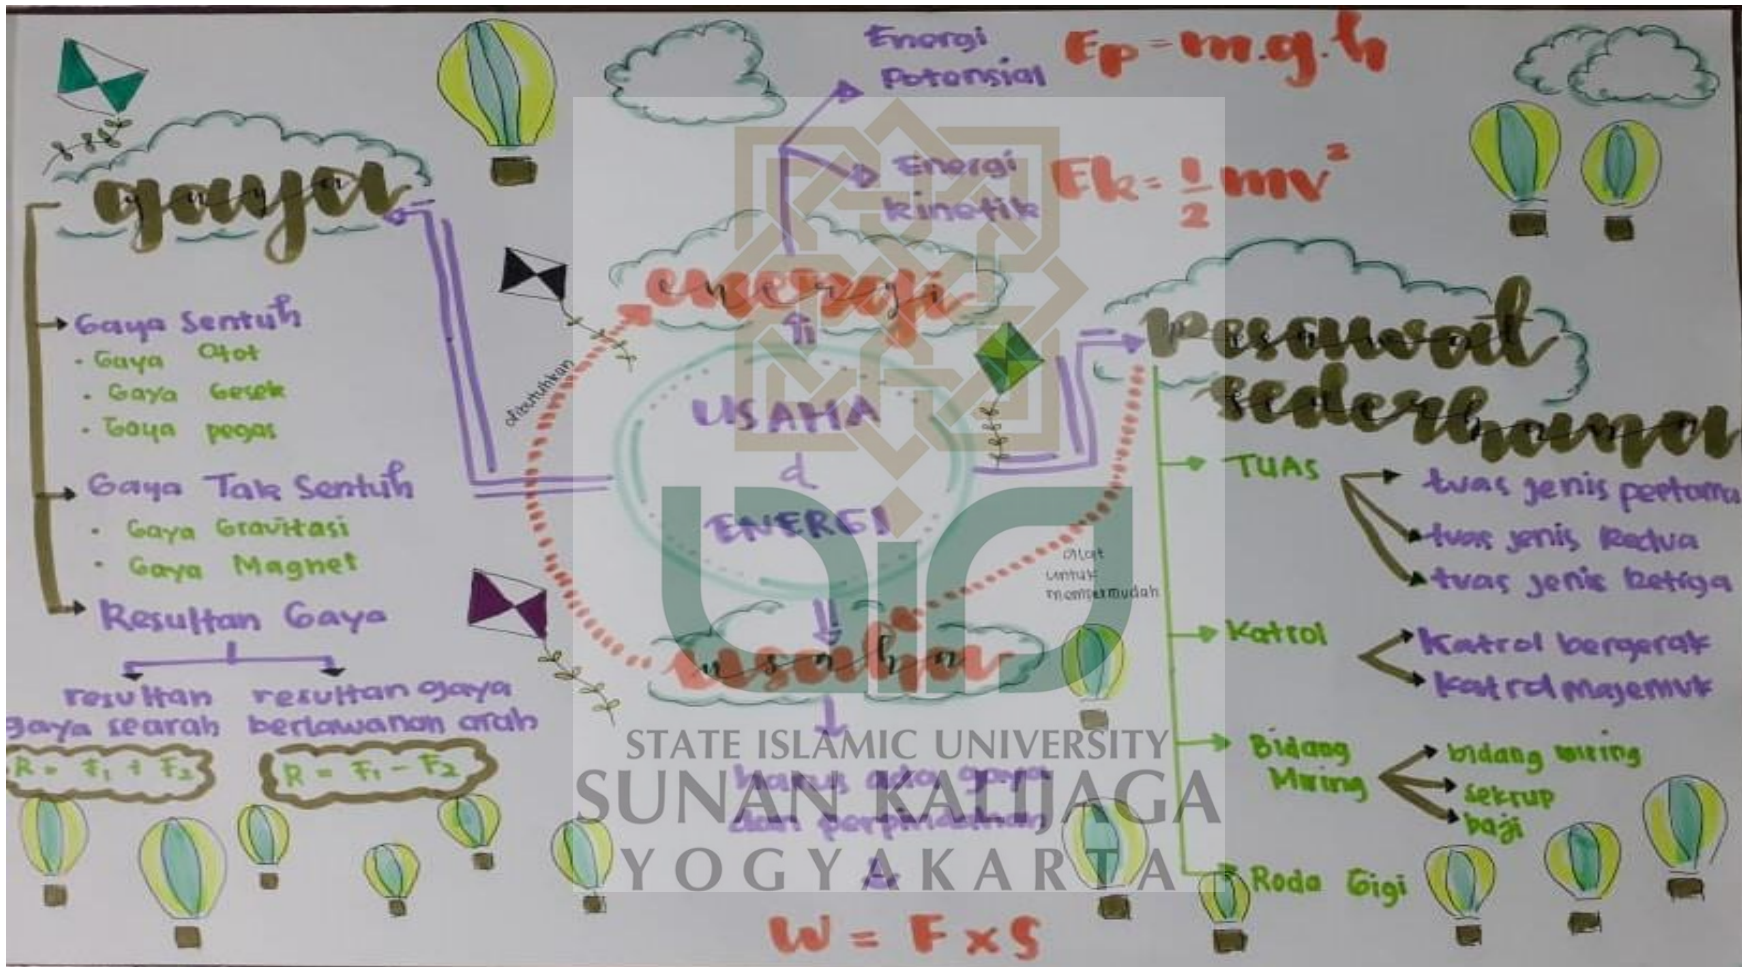 gaya
Gaya Sentuh
• Gaya Otot
• Gaya Gesek
• Gaya pegas
Gaya Tak Sentuh
• Gaya Gravitasi
• Gaya Magnet
Resultan Gaya
resultan
gaya searah
R = F₁ + F₂
resultan gaya
berlawanan arah
R = F₁ - F₂
Energi
Potensial
Ep = m.g.h
Energi
kinetik
Ek = 1/2 mv²
energi
dibutuhkan
USAHA
d
ENERGI
usaha
harus ada gaya
dan perpindahan
W = F x S
alat
untuk
mempermudah
Pesawat
sederhana
TUAS
tuas jenis pertama
tuas jenis kedua
tuas jenis ketiga
Katrol
Katrol bergerak
Katrol majemuk
Bidang
Miring
bidang miring
sekrup
baji
Roda Gigi
STATE ISLAMIC UNIVERSITY
SUNAN KALIJAGA
YOGYAKARTA